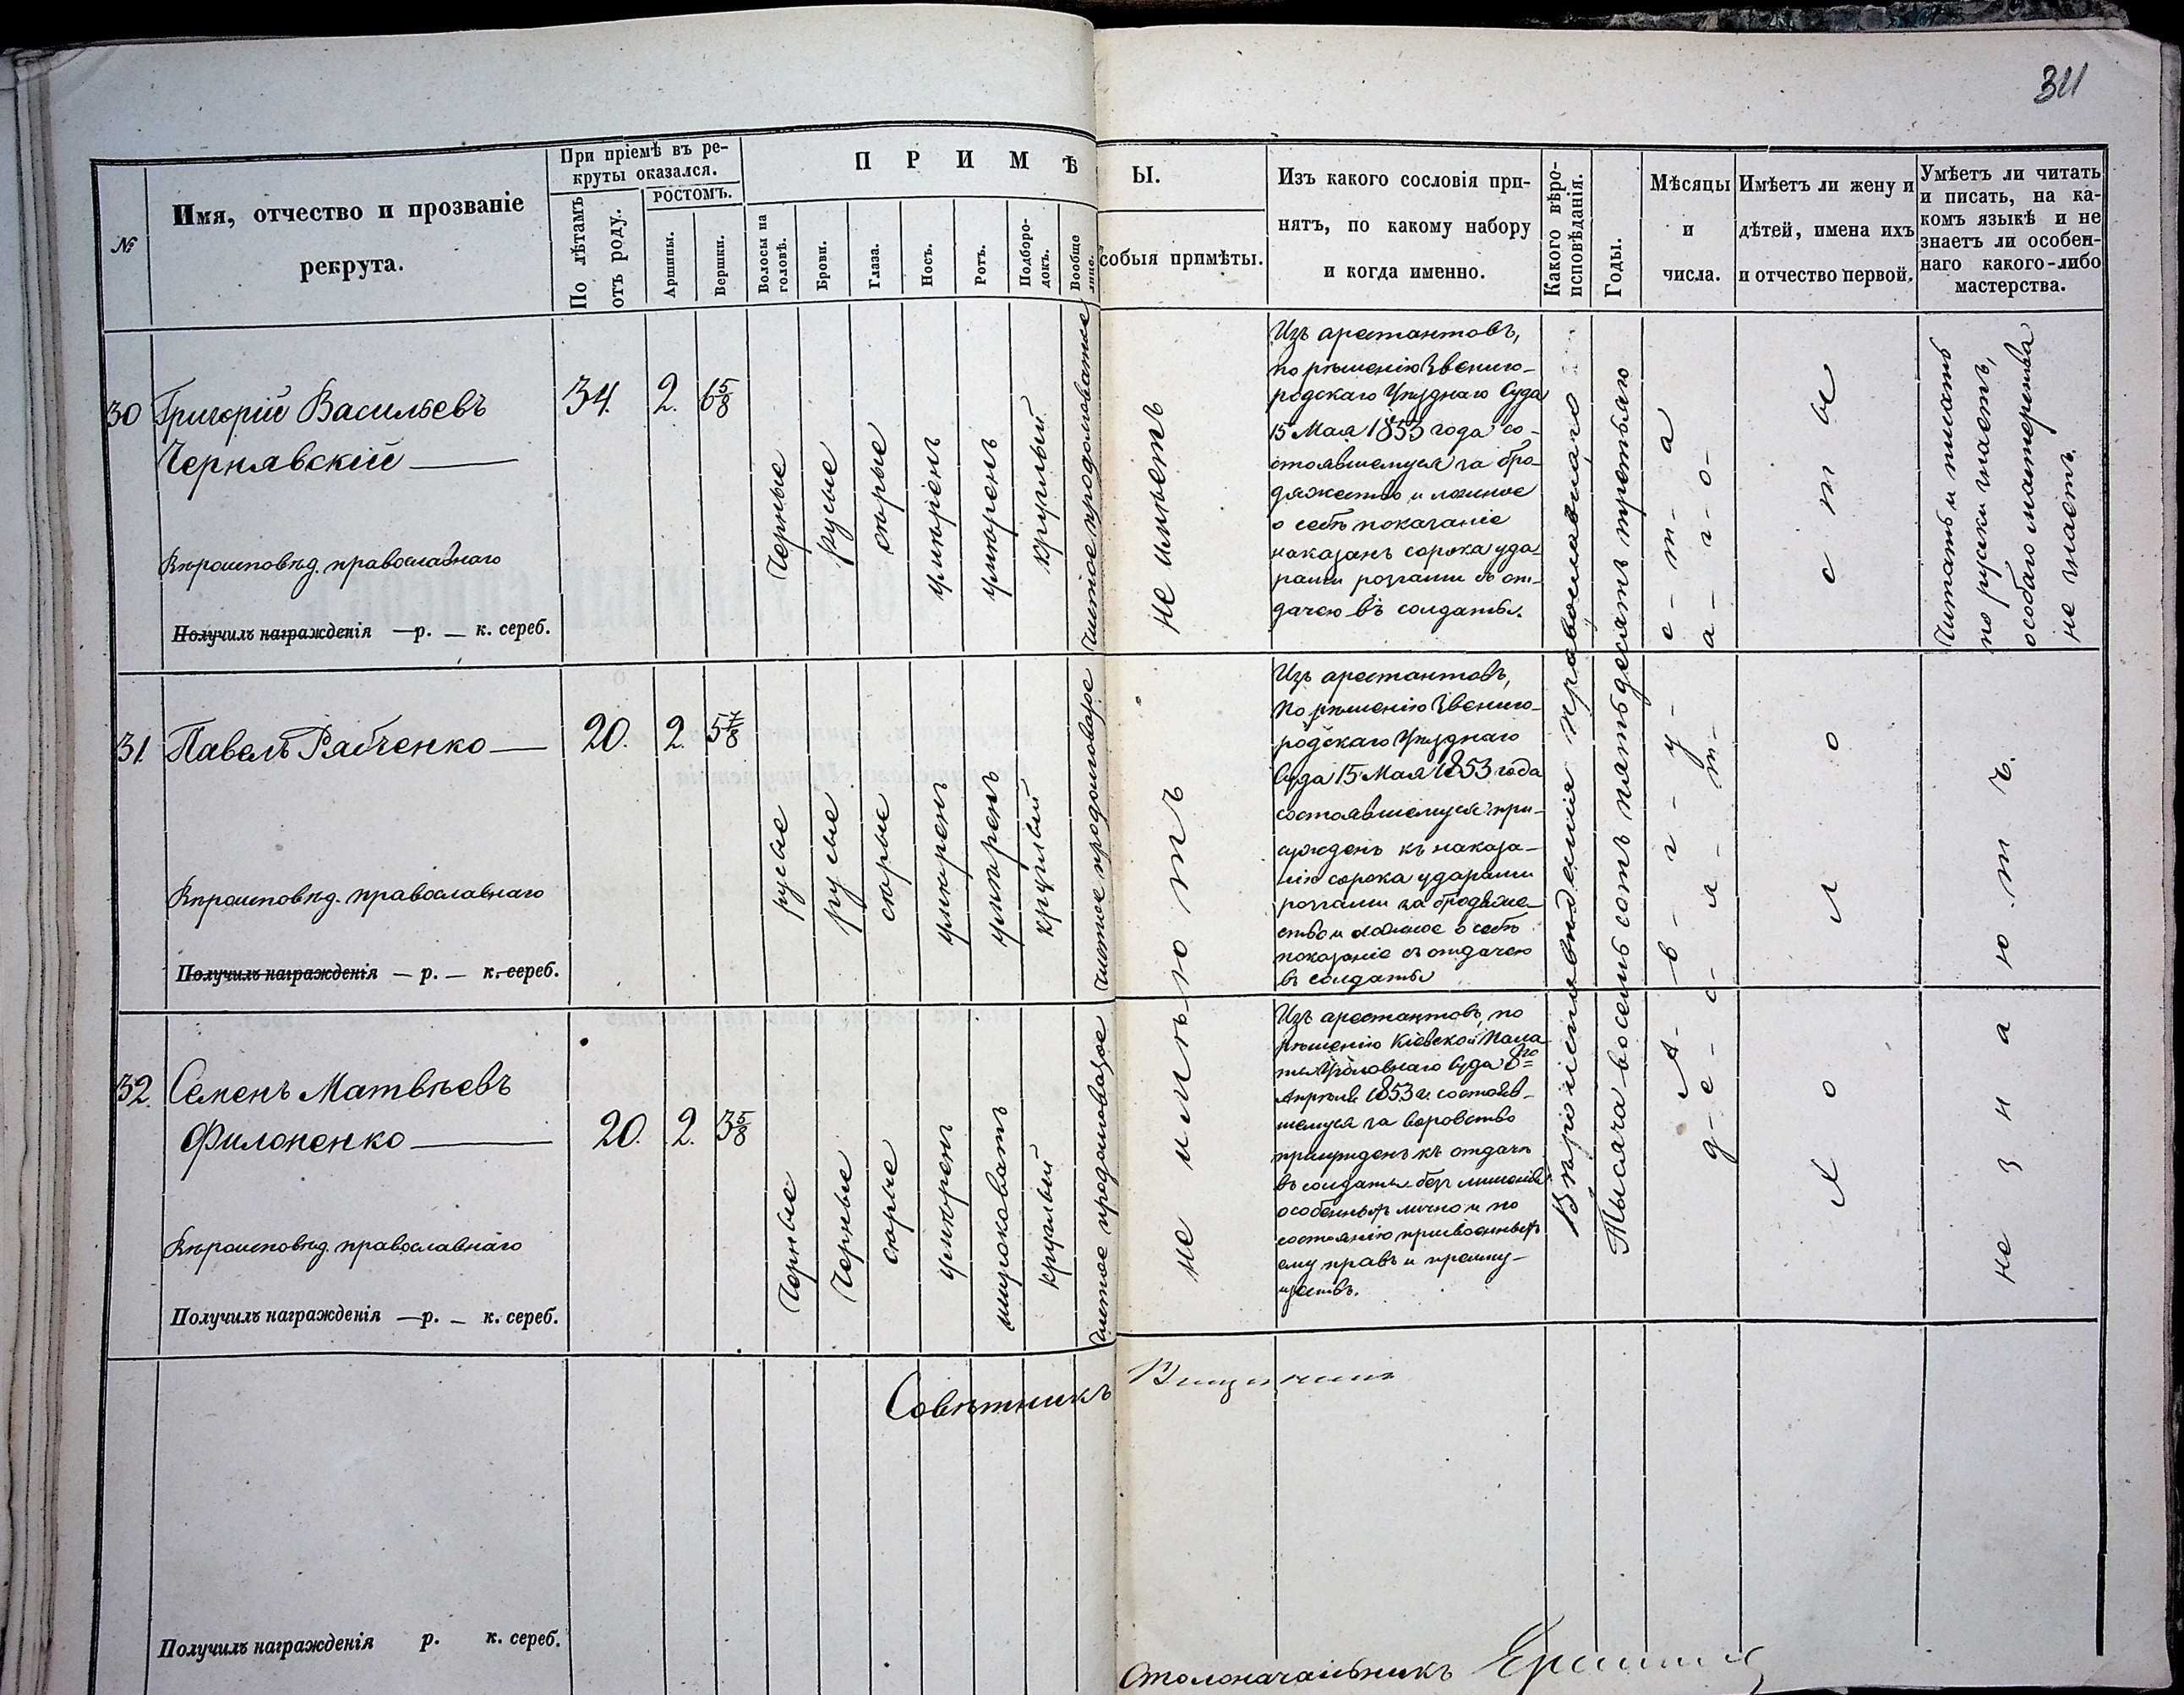 311
№
Имя, отчество и прозваніе
рекрута.
При пріемѣ въ ре-
круты оказался.
По лѣтамъ
отъ роду.
РОСТОМЪ.
Аршины.
Вершки.
П Р И М Ѣ
Ы.
Волосы на
головѣ.
Брови.
Глаза.
Носъ.
Ротъ.
Подборо-
докъ.
Вообще
лице.
собыя примѣты.
Изъ какого сословія при-
нятъ, по какому набору
и когда именно.
Какого вѣро-
исповѣданія.
Годы.
Мѣсяцы
и
числа.
Имѣетъ ли жену и
дѣтей, имена ихъ
и отчество первой.
Умѣетъ ли читать
и писать, на ка-
комъ языкѣ и не
знаетъ ли особен-
наго какого-либо
мастерства.
30
Григорій Васильевъ
Чернявскій
Вѣроисповѣд. православнаго
Получилъ награжденія —р. — к. сереб.
34.
2.
6 5/8
Черные
русые
сѣрые
умѣренъ
умѣренъ
круглый
чистое продолговатое
не имѣетъ
Изъ арестантовъ,
по рѣшенію Звениго-
родскаго Уѣзднаго Суда
15 Мая 1853 года со-
стоявшемуся за бро-
дяжество и ложное
о себѣ показаніе
наказанъ сорока уда-
рами розгами съ от-
дачею въ солдаты.
Вѣроисповѣданія православнаго
Тысяча восемь сотъ пятьдесятъ третьяго
А-в-г-у-с-т-а
д-е-с-я-т-а-г-о-
Читать и писать
по русски знаетъ,
особаго мастерства
не знаетъ.
31.
Павелъ Рябченко
Вѣроисповѣд. православнаго
Получилъ награжденія — р. — к. сереб.
20.
2.
5 7/8
русые
русые
сѣрые
умѣренъ
умѣренъ
круглый
чистое продолговатое
не имѣютъ
Изъ арестантовъ,
По рѣшенію Звениго-
родскаго Уѣзднаго
Суда 15 Мая 1853 года
состоявшемуся при-
сужденъ къ наказа-
нію сорока ударами
розгами за бродяже-
ство и ложное о себѣ
показаніе съ отдачею
въ солдаты
х о л о с т ы
не з н а ю т ъ.
32.
Семенъ Матвѣевъ
Филоненко
Вѣроисповѣд. православнаго
Получилъ награжденія —р. — к. сереб.
20.
2.
3 5/8
Черные
Черные
сѣрые
умѣренъ
широковатъ
круглый
чистое продолговатое
Изъ арестантовъ, по
рѣшенію Кіевской Пала
ты Уголовнаго Суда 8го
Апрѣля 1853 г. состояв-
шемуся за воровство
присужденъ къ отдачѣ
въ солдаты безъ лишенія
особенныхъ лично и по
состоянію присвоенныхъ
ему правъ и преиму-
ществъ.
Совѣтникъ
Получилъ награжденія р. к. сереб.
Столоначальникъ